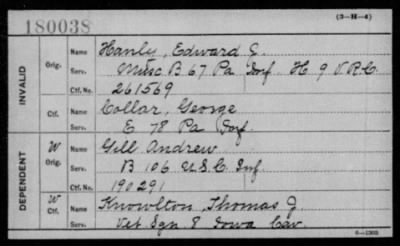 180038
(3-H-4)
INVALID
Orig.
Name Hanly, Edward J.
Serv. Misc B 67 Pa Inf. H 9 V.R.C.
Ctf. No. 261569
Ctf.
Name Collar, George
Serv. E 78 Pa Inf.
DEPENDENT
W
Orig.
Name Gill Andrew
Serv. B 106 U.S.C. Inf
Ctf. No. 190291
W
Ctf.
Name Knowlton, Thomas J.
Serv. Vet Sgn 8 Iowa Cav